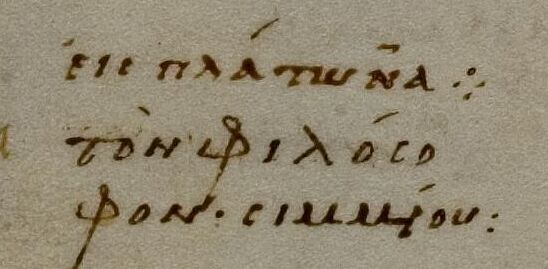 εἰς πλάτωνα ⁘
τὸν φιλόσο
φον· σιμμίου: